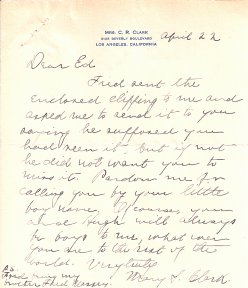 MRS. C. R. CLARK
BEVERLY BOULEVARD
LOS ANGELES, CALIFORNIA
April 22
Dear Ed
Fred sent the
enclosed clipping to me and
asked me to send it to you
saying he supposed you
had seen it but if not
he did not want you to
miss it. Pardon me for
calling you by your little
boy name. Of course, you
and Hugh will always
be boys to me, what ever
you are to the rest of the
world. Very truly
Mary S. Clark
Fred is my